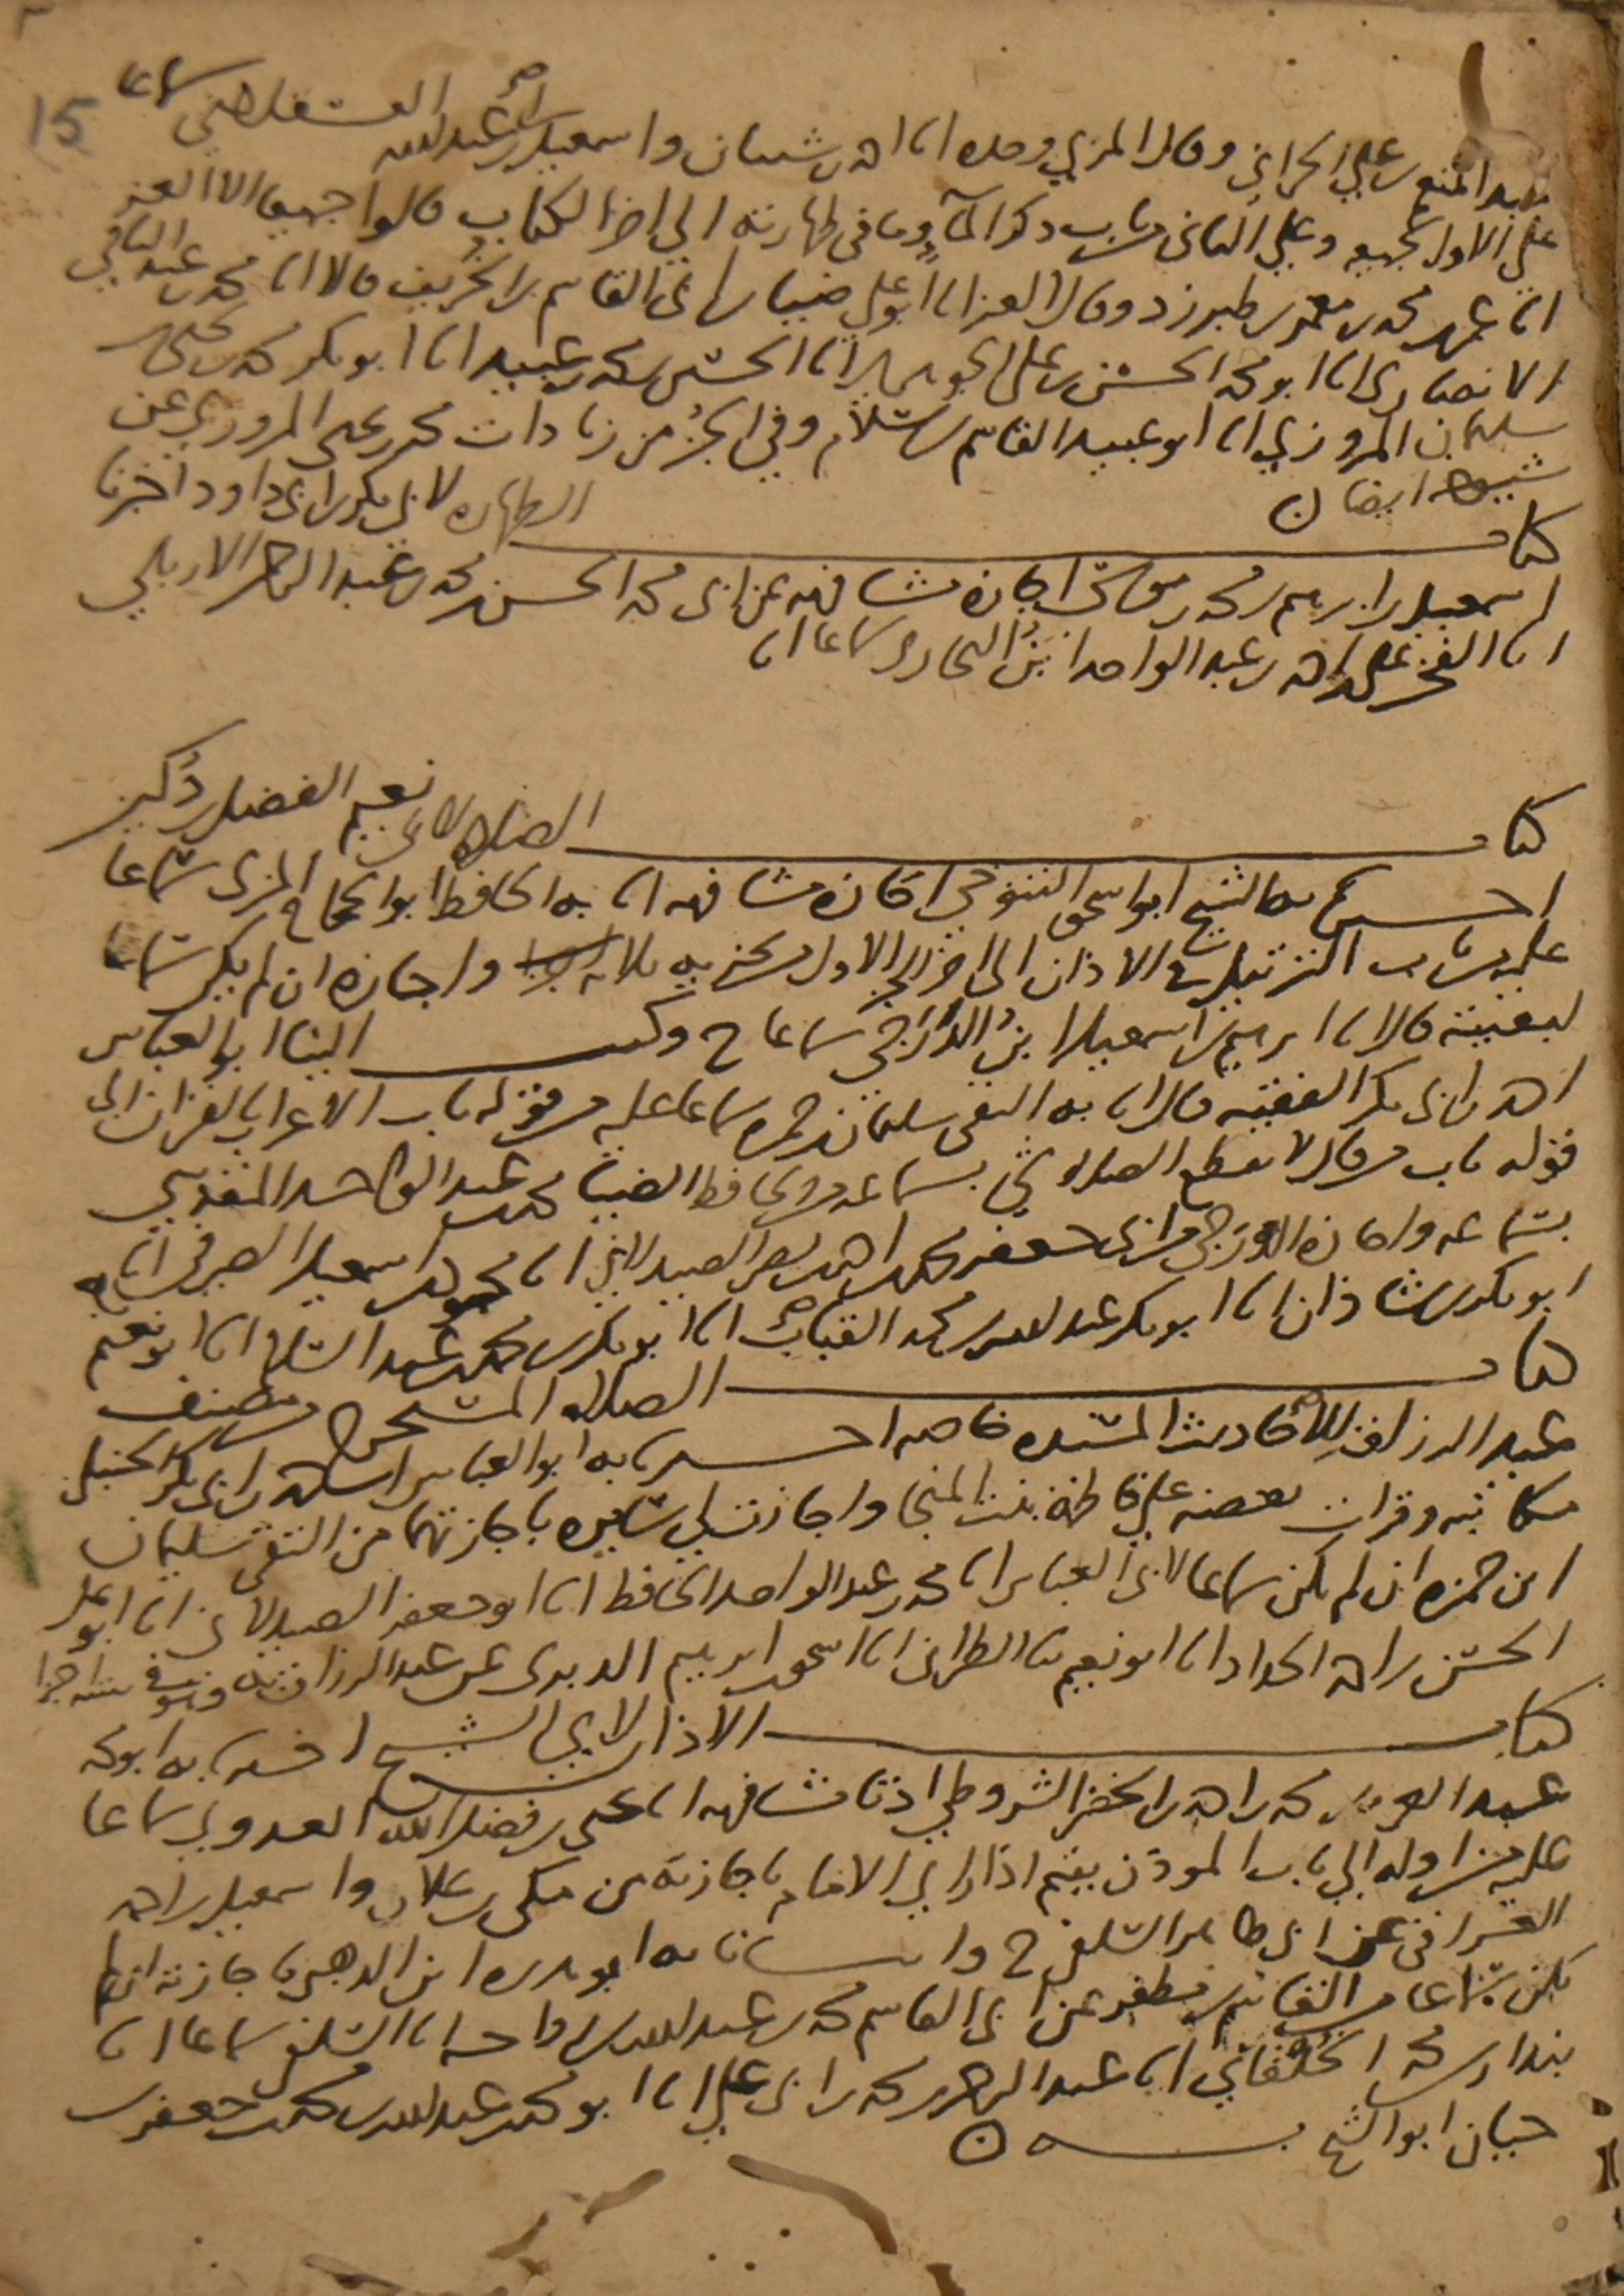 15
عبد المنعم بن علي الحراني وقال المزي وحده انا احمد بن شيبان واسمعيل بن ابي عبد الله العسقلاني سماعا
على الاول لجميعه وعلى الثاني من باب ذكر الماء وما في طهارته الى اخر الكتاب قالوا جميعا الا العز
انا عمر بن محمد بن معمر بن طبرزد وقال العز انا ابو علي ضياء بن ابي القاسم بن الخريف قالا انا محمد بن عبد الباقي
الانصاري انا ابو محمد الحسن بن علي الجوهري انا الحسين بن محمد بن عبيد انا ابو بكر محمد بن يحيى بن
سليمان المروزي انا ابو عبيد القاسم بن سلام وفي الجزء من زيادات محمد بن يحيى المروزي عن
شيوخه ايضا ن
كتاب الطهارة لابي بكر بن ابي داود اخبرنا
اسمعيل بن ابراهيم بن محمد بن موسى اجازة مشافهة عن ابي محمد الحسن بن محمد بن عبد الرحمن الاربلي
انا الفخر علي بن احمد بن عبد الواحد ابن البخاري سماعا انا
كتاب الصلاة لابي نعيم الفضل بن دكين
اخبرنا به الشيخ ابو اسحق التنوخي اجازة مشافهة انا به الحافظ ابو الحجاج المزي سماعا
عليه من باب الترتيل في الاذان الى اخر الجزء الاول من تجزية ثلاثة اجزاء واجازة ان لم يكن سماعا
لبقيته قال انا ابرهيم بن اسمعيل ابن الدرجي سماعا ح وكتب الينا ابو العباس
احمد بن ابي بكر الفقيه قال انا به التقي سليمان بن حمزة سماعا عليه من قوله باب الاعراب القران الى
قوله باب من قال لا يقطع الصلاة شي بسماعه من الحافظ الضياء محمد بن عبد الواحد المقدسي
بسماعه واجازة الدرجي من ابي جعفر محمد بن احمد بن نصر الصيدلاني انا محمود بن اسمعيل الصيرفي انا به
ابو بكر بن شاذان انا ابو بكر عبد الله بن محمد القباب انا ابو بكر بن محمد بن عبد السلام انا ابو نعيم
كتاب الصلاة المستخرج من مصنف
عبد الرزاق للاحاديث المسندة خاصة اخبرنا به ابو العباس احمد بن ابي بكر الحنبلي
مكاتبة وقرات بعضه على فاطمة بنت المنجا واجازت لي سايره باجازتهما من التقي سليمان
ابن حمزة ان لم يكن سماعا لابي العباس انا محمد بن عبد الواحد الحافظ انا ابو جعفر الصيدلاني انا ابو علي
الحسن بن احمد الحداد انا ابو نعيم ثنا الطبراني انا اسحق بن ابرهيم الدبري عن عبد الرزاق به وهو في ستة اجزا
كتاب الاذان لابي الشيخ اخبرنا به ابو محمد
عبد العزيز بن محمد بن احمد بن الخضر الشروطي اذنا مشافهة انا يحيى بن فضل الله العدوي سماعا
عليه من اوله الى باب المؤذن يقيم اذا راي الامام باجازته من مكي بن علان واسمعيل بن احمد
العراقي عن ابي طاهر السلفي ح وانبانا به ابو هريرة ابن الذهبي باجازته ان لم
يكن سماعا من القاسم بن مظفر عن ابي القاسم محمد بن عبد الله بن رواحة انا السلفي سماعا انا
بندار بن محمد الخلقاني انا عبد الرحمن بن محمد بن ابي علي انا ابو محمد عبد الله بن محمد بن جعفر بن
حيان ابو الشيخ به ن